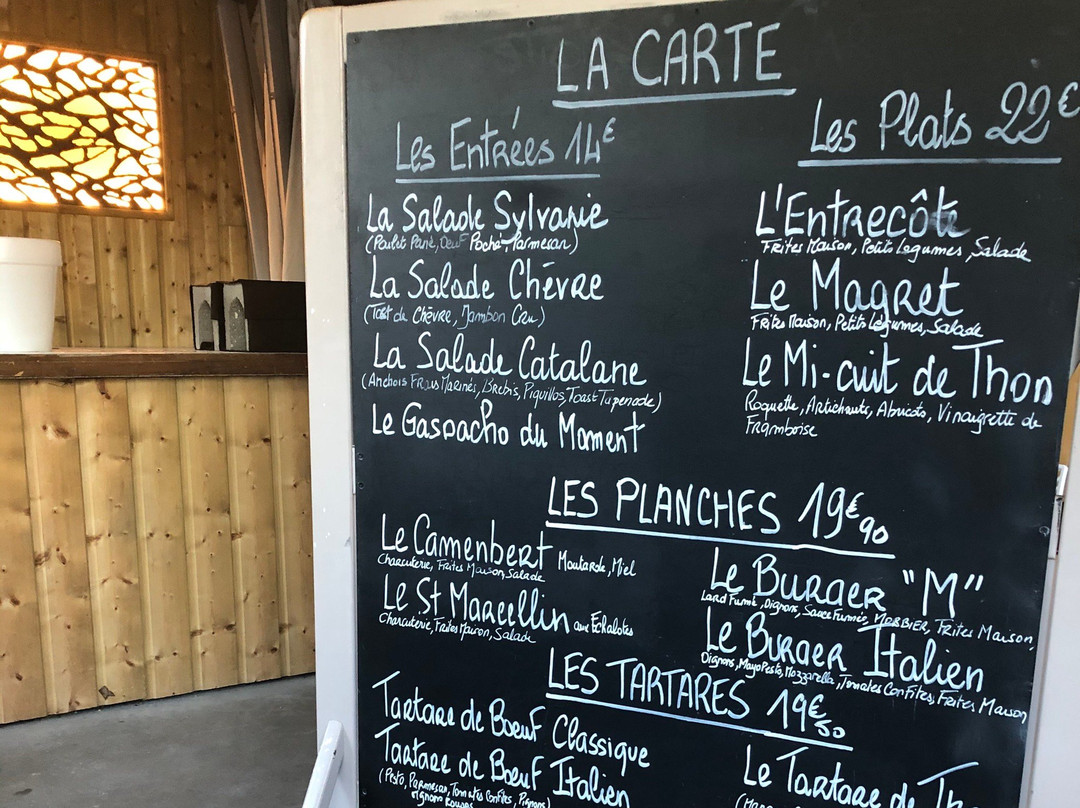 LA CARTE
Les Entrées 14€
La Salade Sylvanie
(Poulet Pané, Oeuf Poché, Parmesan)
La Salade Chèvre
(Tost de Chèvre, Jambon Cru)
La Salade Catalane
(Anchois Frais Marinés, Brebis, Piquillos, Toast Tapenade)
Le Gaspacho du Moment
Les Plats 22€
L'Entrecôte
Frites Maison, Petits Legumes, Salade
Le Magret
Frites Maison, Petits Légumes, Salade
Le Mi-cuit de Thon
Roquette, Artichauts, Abricots, Vinaigrette de
Framboise
LES PLANCHES 19€90
Le Camenbert Moutarde, Miel
Charcuterie, Frites Maison, Salade
Le St Marcellin aux Echalotes
Charcuterie, Frites Maison, Salade
Le Burger "M"
Lard Fumé, Oignons, Sauce Fumée, MORBIER, Frites Maison,
Le Burger Italien
Oignons, Mayo Pesto, Mozzarella, Tomates Confites, Frites Maison
LES TARTARES 19€50
Tartare de Boeuf Classique
Tartare de Boeuf Italien
(Pesto, Parmesan, Tomates Confites, Pignons)
Oignons Rouges
Le Tartare de